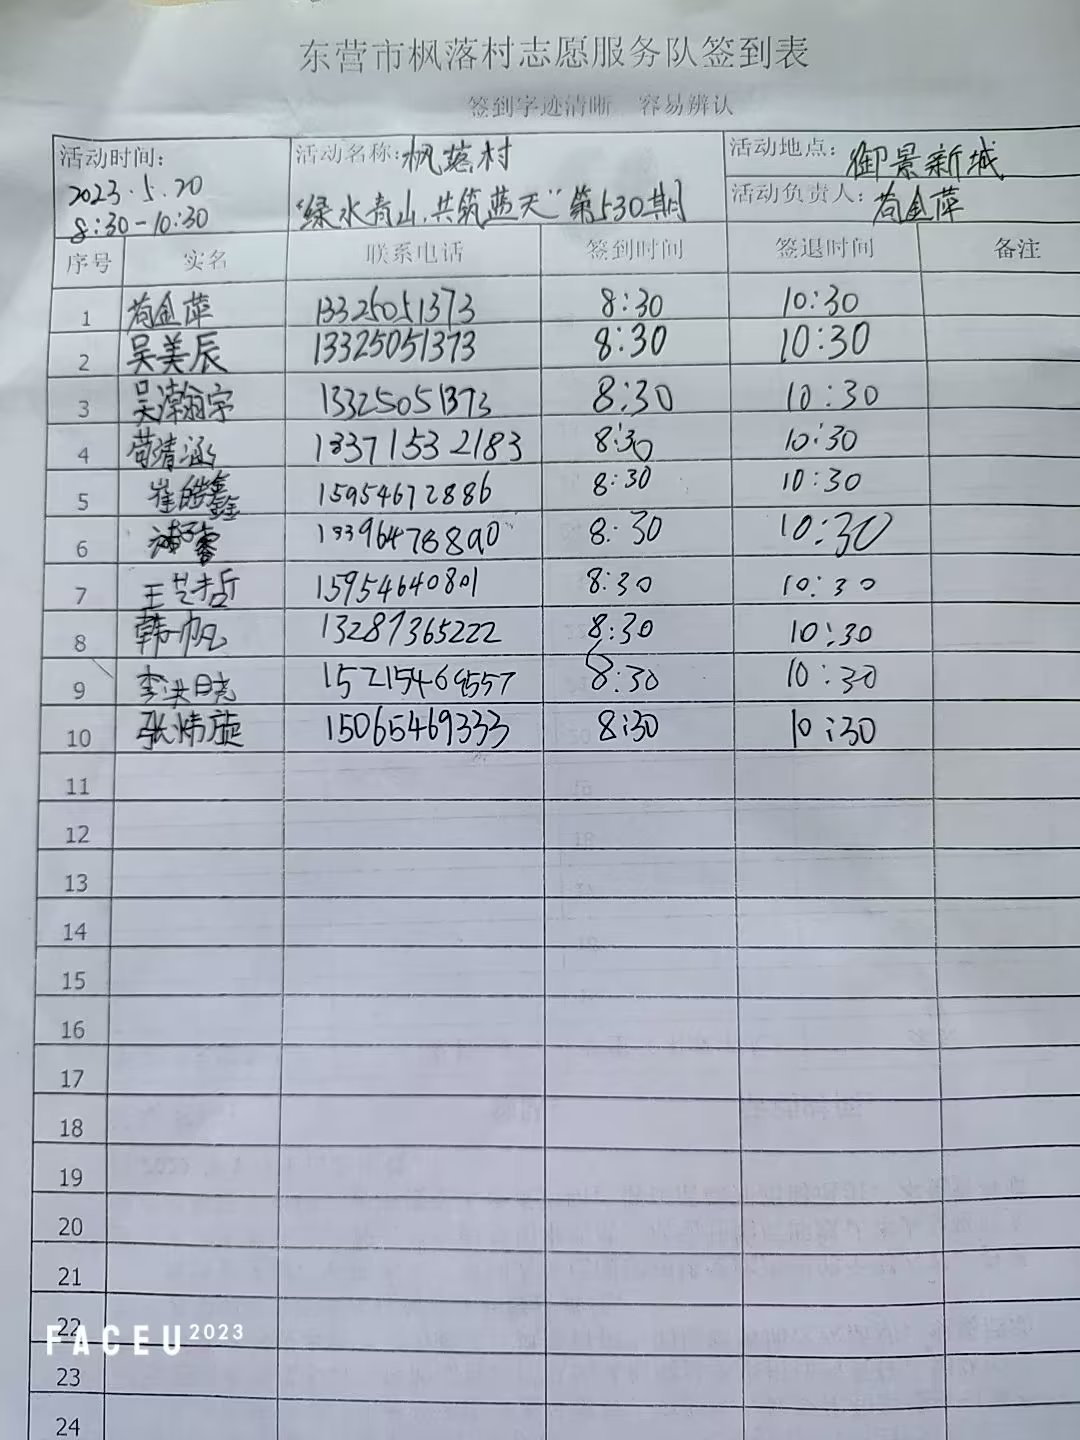 东营市枫落村志愿服务队签到表
签到字迹清晰 容易辨认
活动时间: 2023.5.20 8:30-10:30
活动名称: 枫落村 "绿水青山,共筑蓝天"第530期
活动地点: 御景新城
活动负责人: 苟金萍
序号 实名 联系电话 签到时间 签退时间 备注
1 苟金萍 13325051373 8:30 10:30
2 吴美辰 13325051373 8:30 10:30
3 吴瀚宇 13325051373 8:30 10:30
4 苟清涵 13371532183 8:30 10:30
5 崔皓鑫 15954672886 8:30 10:30
6 8:30 10:30
7 王艺哲 15954640801 8:30 10:30
8 韩一帆 13287365222 8:30 10:30
9 李洪晓 8:30 10:30
10 张炜旋 15065469333 8:30 10:30
11
12
13
14
15
16
17
18
19
20
21
22
FACEU 2023
23
24